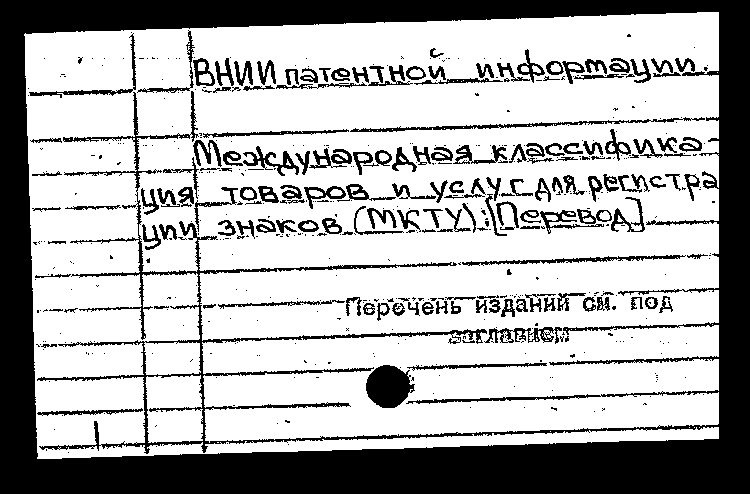 ВНИИ патентной информации.
Международная классифика-
ция товаров и услуг для регистра
ции знаков (МКТУ): [Перевод]
Перечень изданий см. под
заглавием